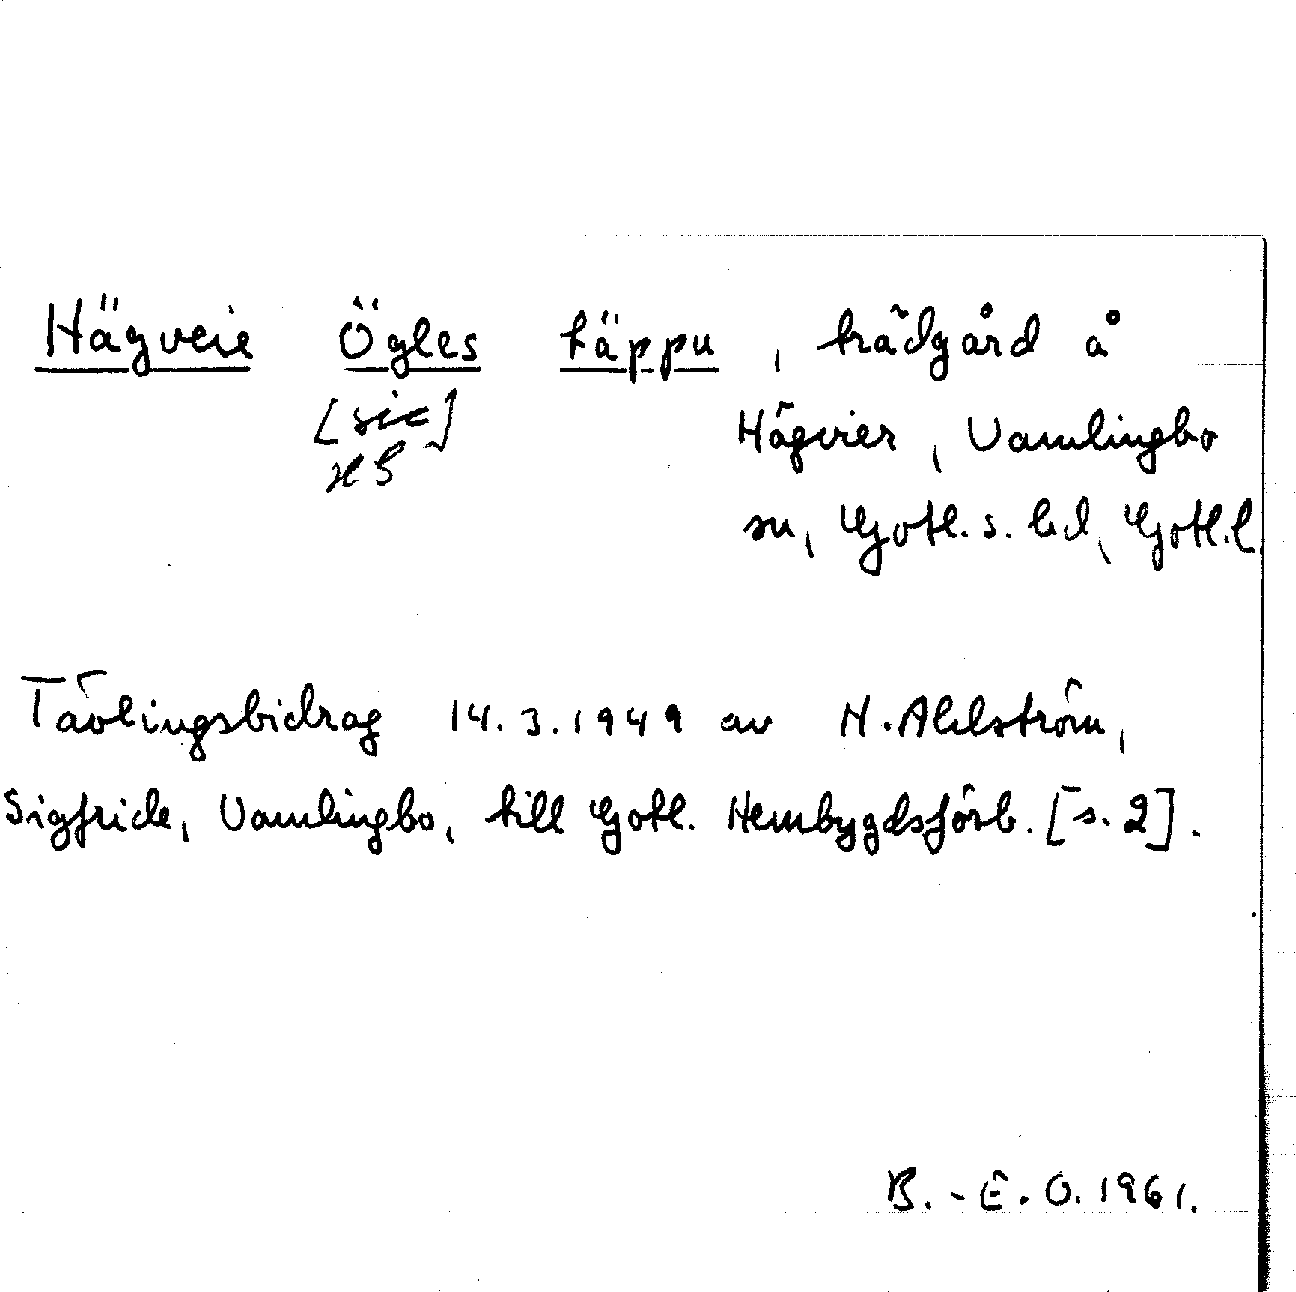 Hägveie Ögles täppu, trädgård å
[sic]
Hägvier, Vamlingbo
HS
sn, Gotl. s. hd, Gotl. l.
Tävlingsbidrag 14.3.1949 av H. Ahlström,
Sigfride, Vamlingbo, till Gotl. Hembygdsförb. [s. 2].
B.-E. O. 1961.